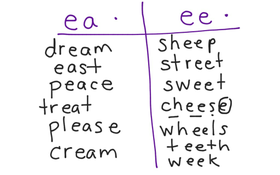 ea · ee ·
dream sheep
east street
peace sweet
treat cheese
please wheels
cream teeth
week